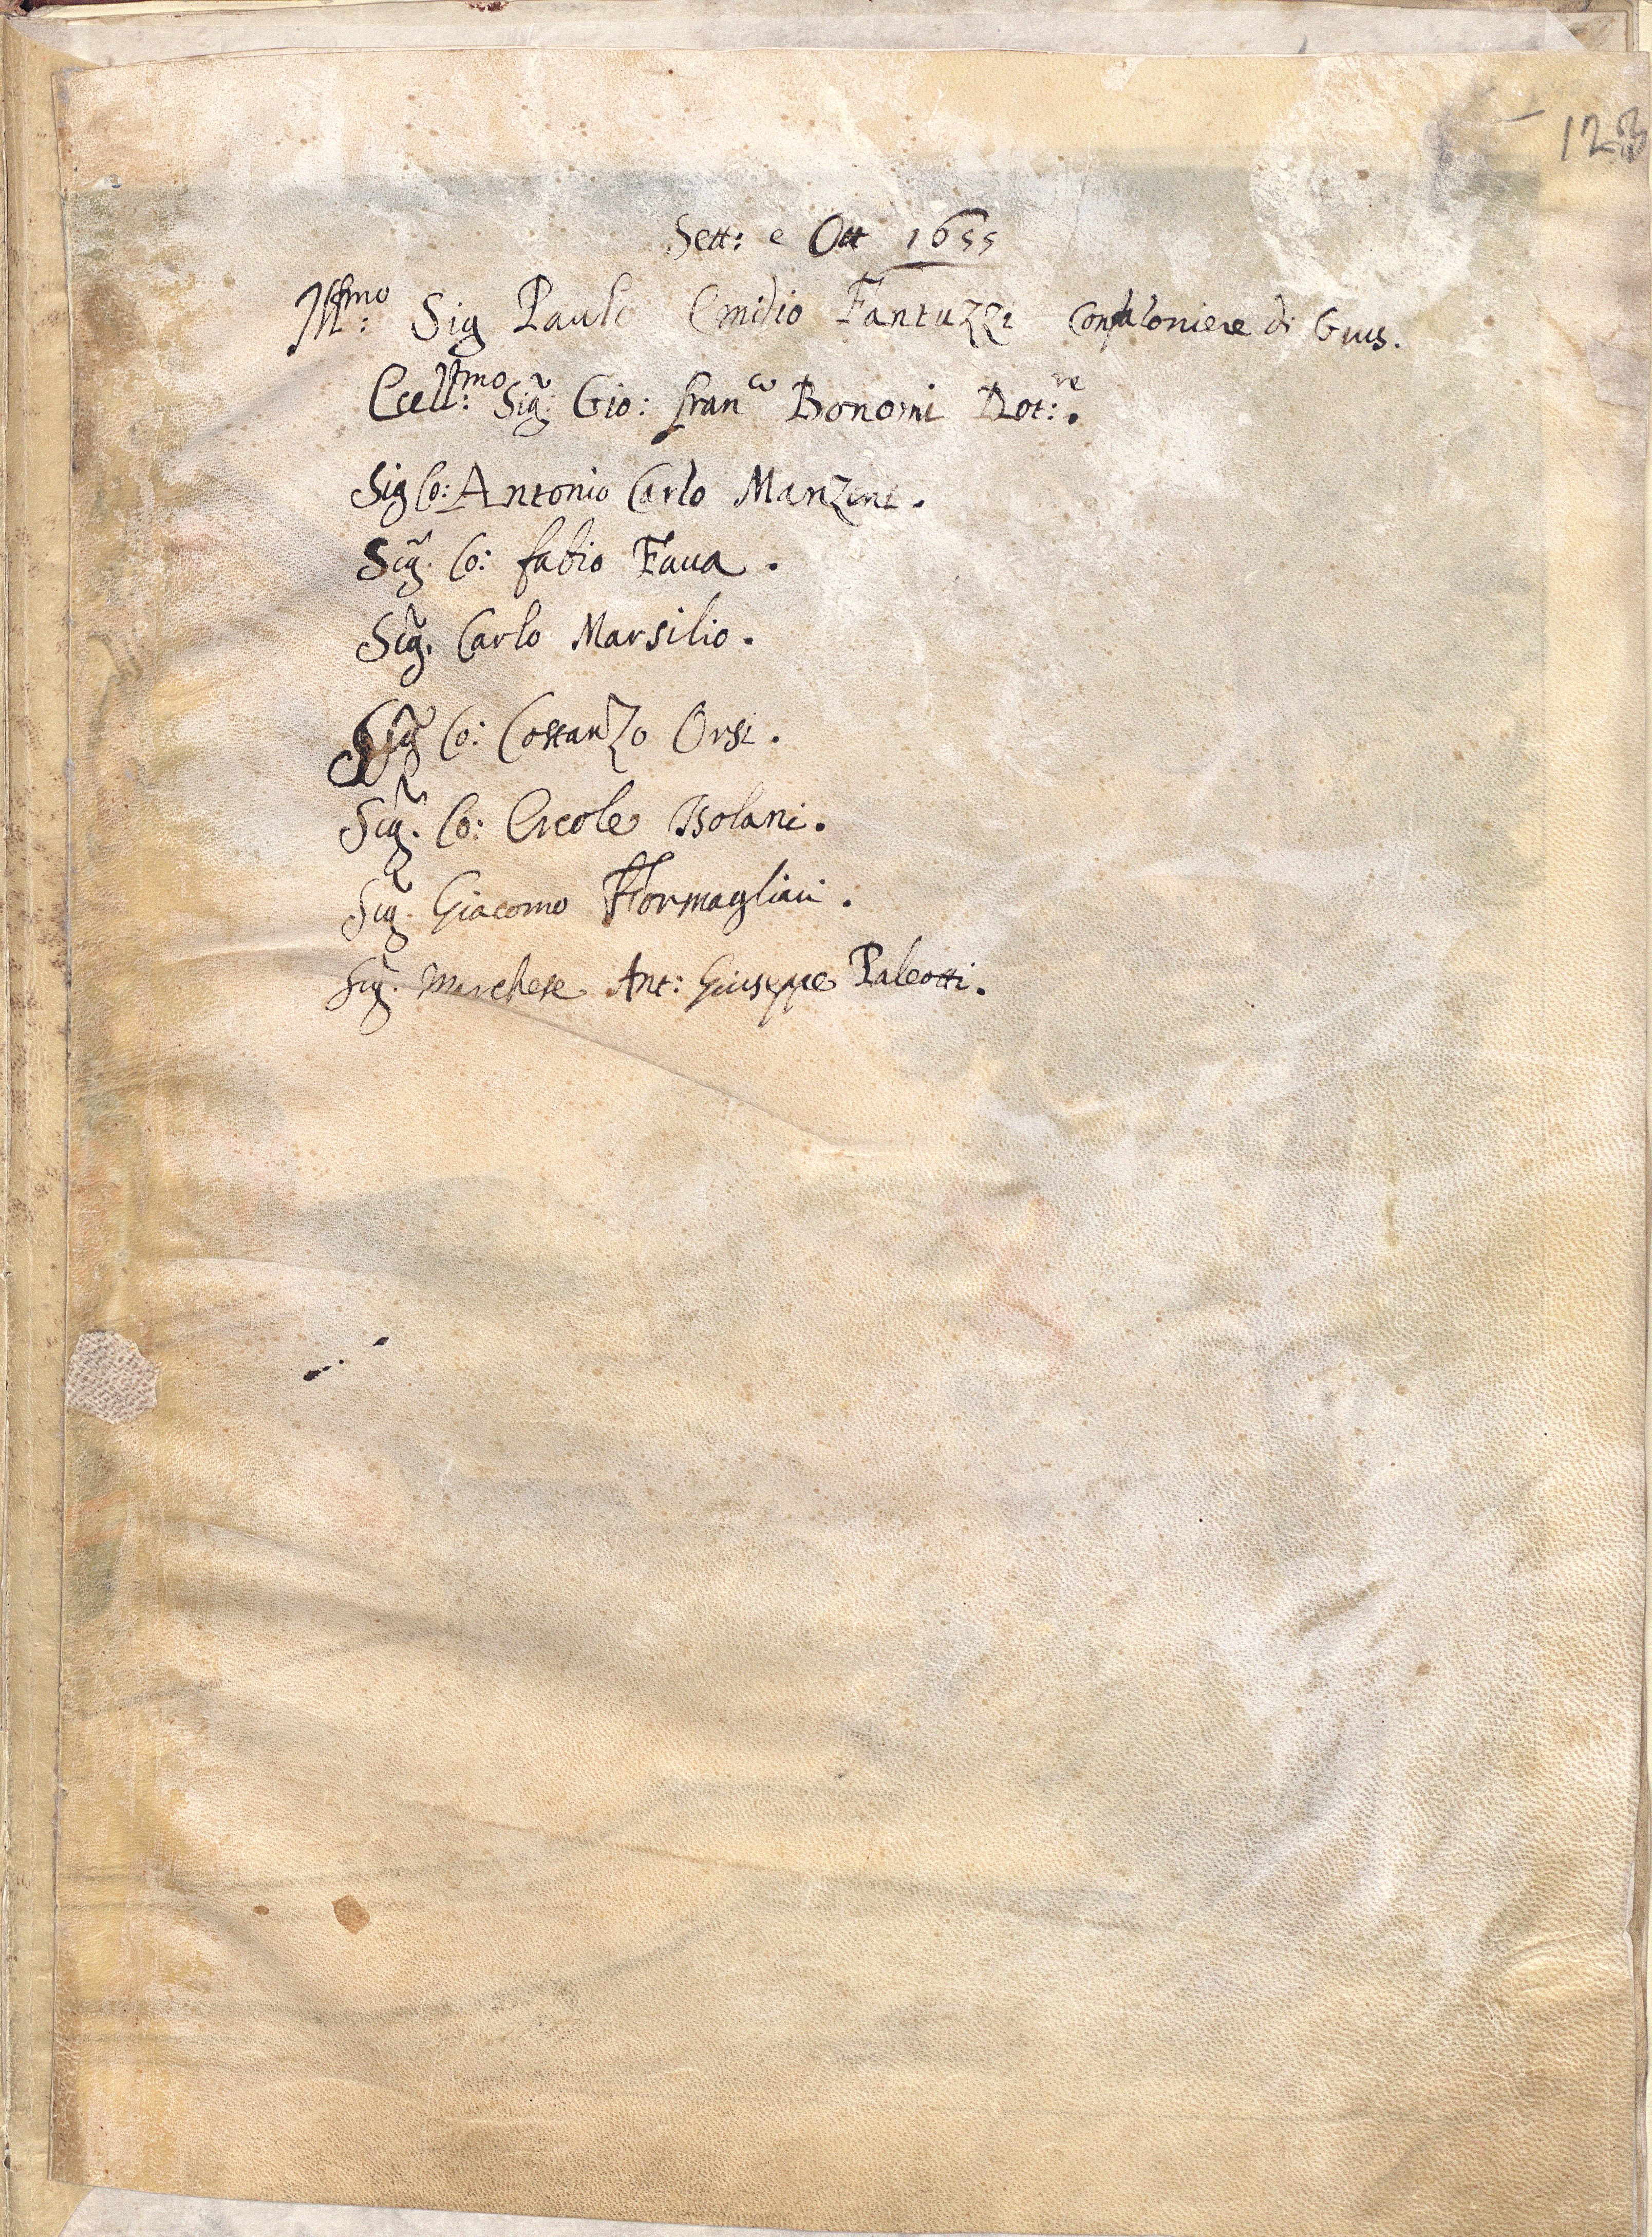 123
Sett: e Ott 1655
Ill:mo Sig Paulo Emidio Fantuzzi Confaloniere di Gius.
Ecell:mo Sig: Gio: franco Bonomi Dot:re.
Sig Co: Antonio Carlo Manzini.
Sig. Co: fabio Faua.
Sig. Carlo Marsilio.
Sig Co: Costanzo Orsi.
Sig. Co: Ercole Isolani.
Sig. Giacomo Formagliari.
Sig. Marchese Ant: Giuseppe Paleotti.